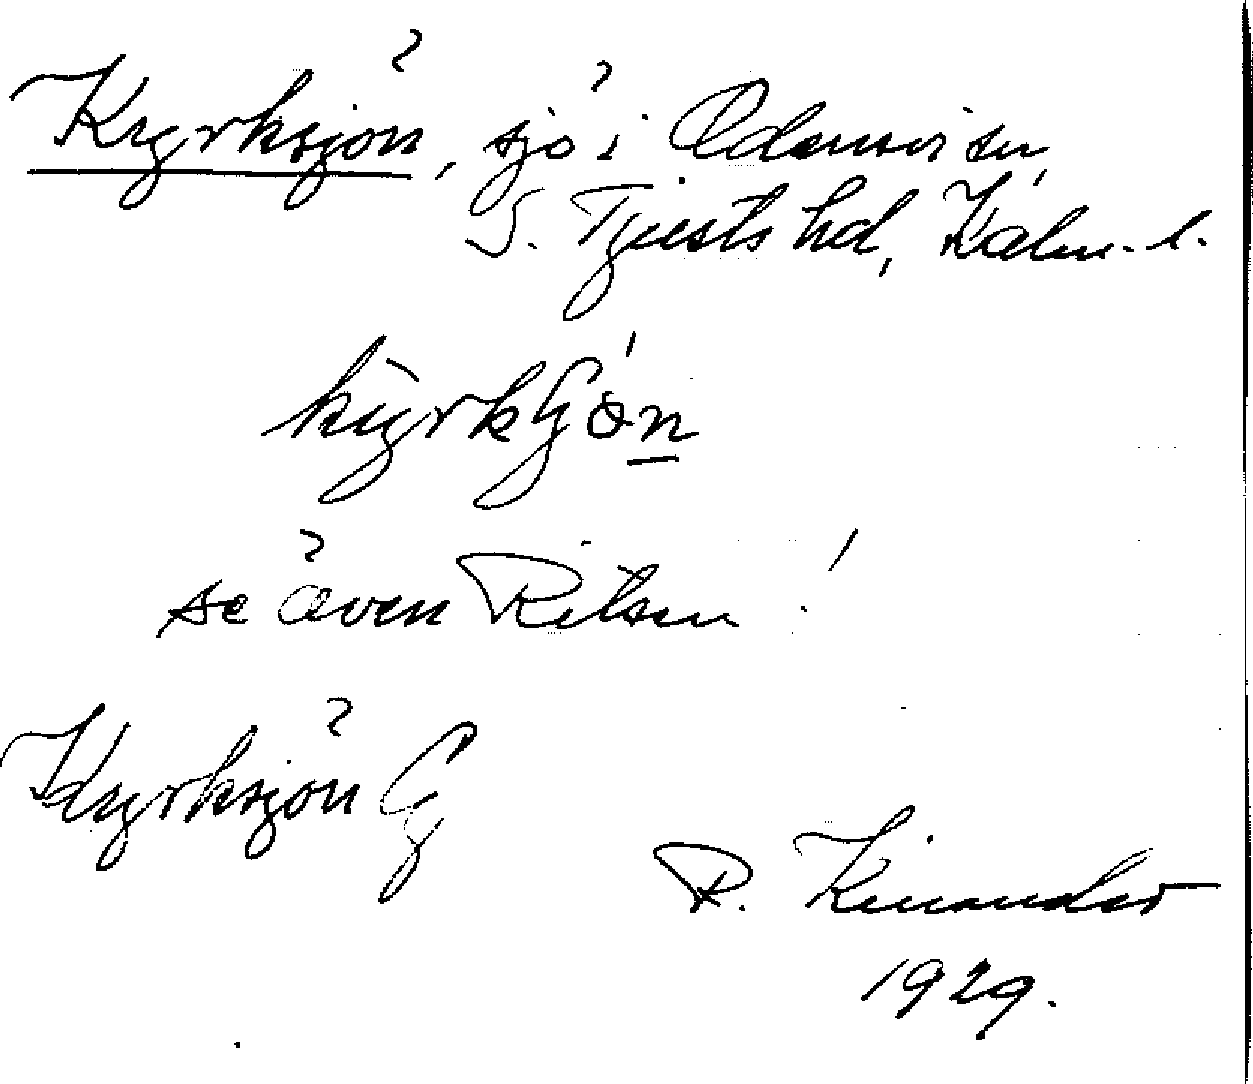 Kyrksjön, sjö i Odensvi sn,
S. Tjusts hd, Kalm. l.
se även Ritsen!
Kyrksjön G
R. Kinander
1929.